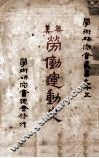 學術研究會叢書之五
勞働運動史
學術研究會總會發行